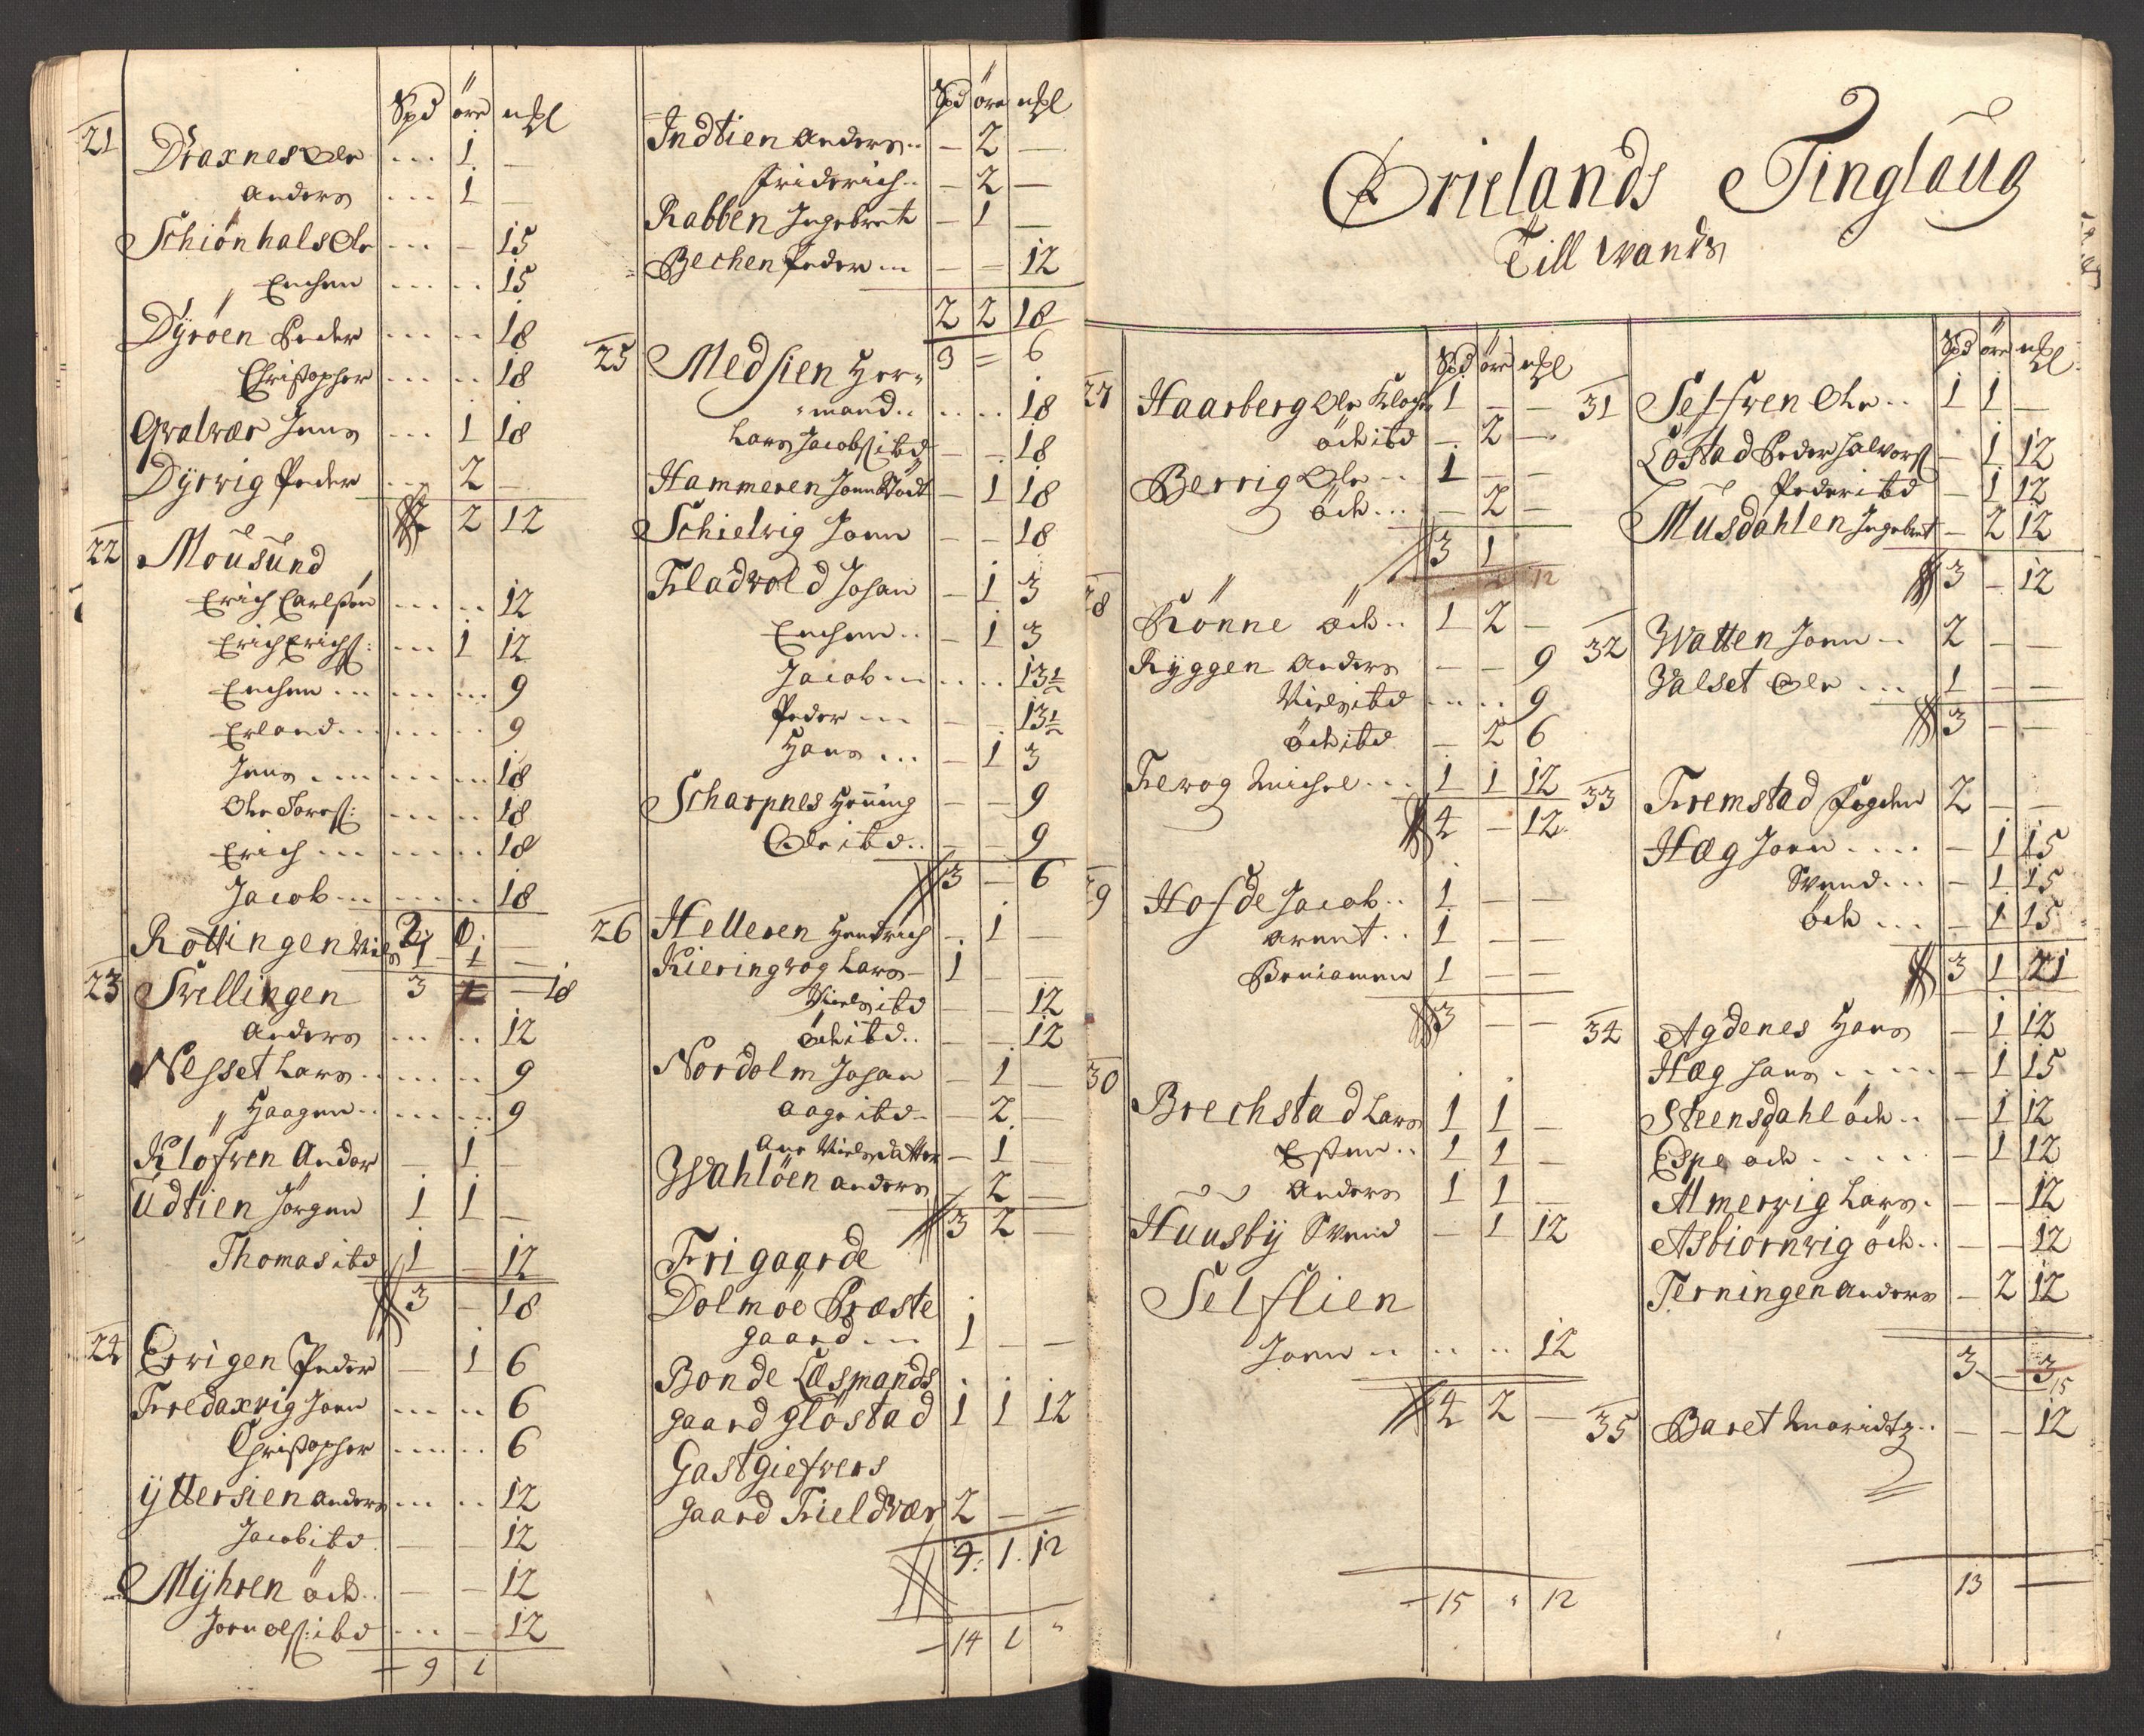 Spd öre mkl
21 Draxnes Ole ... 1 —
Anders ... 1 —
Schiönhals Ole ... – 15
Enchen ... .. 15
Dÿröen Peder ... .. 18
Christopher ... .. 18
Qvalvær Jens ... 1 18
Dÿrvig Peder ... 2 –
2 2 12
22 Mousund
Erich Carlsen ... .. 12
Erich Erichs: ... 1 12
Enchen ... ... ... 9
Erland ... ... .. 9
Jens ... ... ... 18
Ole Tores: ... .. 18
Erich ... ... .. 18
Jacob ... ... .. 18
Rottingen Niels 1 1 —
23 Svellingen 3 1 – 18
Anders ... .. 12
Nesset Lars .. ... .. 9
" Haagen .. ... ... 9
Klöfven Ander — 1 –
Udtien Jörgen 1 1 —
Thomas ibd 1 – 12
3 – 18
24 Ervigen Peder — 1 6
Fredaxvig Joen ... .. 6
Christopher ... ... 6
ÿttersien Anders ... .. 12
Jacob ibd — – 12
Mÿhren öde .. — – 12
Joen ols: ibd ... – 12
9 1
Spd öre mkl
Indtien Anders .. – 2 —
Friderich .. – 2 —
Rabben Ingebret – 1 —
Bechen Peder ... – = 12
2 2 18
25 Medsien Her= 3 = 6
=mand .. .. .. 18
Lars Jacobs ibd – – 18
Hammeren Jonn Stödt – 1 18
Schielvig Joen – – 18
Fladvold Johan – 1 3
Enchen .. – 1 3
Jacob ... .. .. 13½
Peder ... – – 13½
Hans ... – 1 3
Scharpnes Henning – – 9
Ole ibd .. – – 9
3 – 6
26 Helleren Hendrich – 1 —
Kieringvog Lars – 1 – —
Niels ibd – – 12
öde ibd .. – – 12
Nordolm Johan – 1 —
Aage ibd – – 2 —
Ane Nielsdatter – 1 —
Wahlöen Anders – 2 —
3 2 —
Frigaarde
Dolmöe Præste
gaard ... 1 – —
Bonde Læsmands
gaard gløstad 1 1 12
Gastgiefvers
gaard Fieldvær 2 – =
4: 1. 12
14 1 "
Ørielands Tinglaug
Till wands
Spd öre mkl
27 Haarberg Ole Kloch 1 – —
öde ibd – 2 —
Berrig Ole .. 1 – —
öde ... – 2 —
3 1
12
28 Rönne öde .. 1 2 —
Rÿggen Anders – – 9
Niels ibd ... .. 9
öde ibd – 2 6
Fevog Michel ... 1 1 12
4 – 12
29 Hofde Jacob .. 1 – —
Arent .. 1 – —
Beniamen 1 – —
3 – —
30 Brechstad Lars 1 1 —
Esten .. 1 1 —
Anders 1 1 —
Huusbÿ Svend – 1 12
Selflien
Joen .. .. .. 12
4 2 —
15 " 12
Spd öre mkl
31 Selfven Ole .. 1 1 —
Löstad Peder Halvors – 1 12
Peder ibd – 1 12
Musdahlen Ingebret – 2 12
3 – 12
32 Watten Joen .. 2 – —
Valset Ole ... 1 – —
3 – —
33 Fremstad Fogden 2 – —
Hæg Joen .... – 1 15
Svend ... – 1 15
öde ... – 1 15
3 1 21
34 Agdenes Hans – 1 12
Hæg Hans .... – 1 15
Steensdahl öde .. – 1 12
Espe öde .... – 1 12
Almervig Lars . – – 12
Asbiörnvig öde .. – – 12
Terningen Anders – 2 12
3 – 3
15
35 Baret Mauridtz .. – – 12
13 —